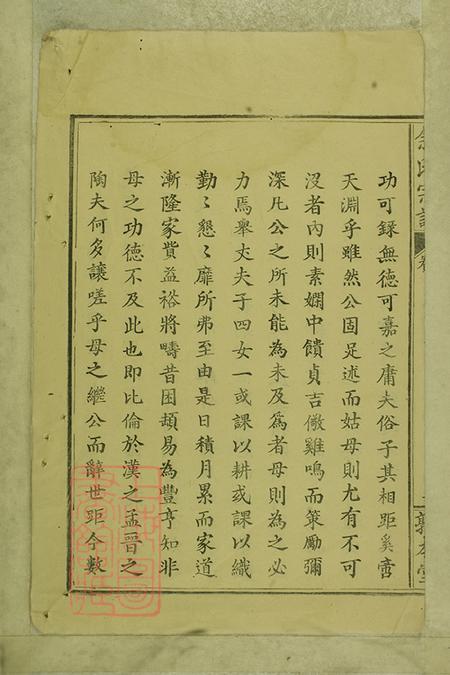 功可録無德可嘉之庸夫俗子其相距奚啻
天淵乎雖然公固足述而姑母則尤有不可
沒者內則素嫻中饋貞吉儆雞鳴而策勵彌
深凡公之所未能為未及爲者母則為之必
力焉舉丈夫子四女一或課以耕或課以織
勤〻懇〻靡所弗至由是日積月累而家道
漸隆家貲益裕將疇昔困頓易為豐亨知非
母之功德不及此也即比倫於漢之孟晉之
陶夫何多讓嗟乎母之繼公而辭世距今數